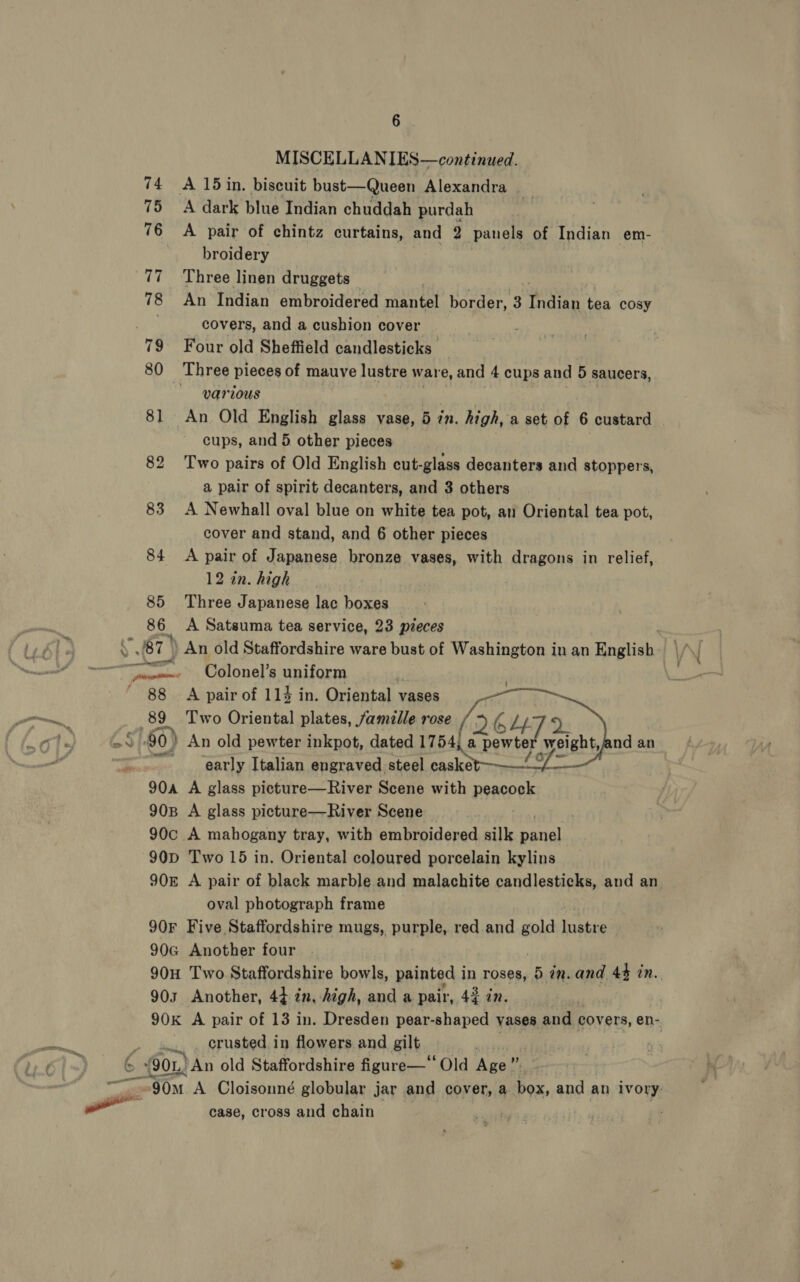 6
MISCELLANIES—continued.
74 A 15 in. biscuit bust—Queen Alexandra
75 A dark blue Indian chuddah purdah
76 A pair of chintz curtains, and 2 panels of Indian em-
broidery
77 Three linen druggets
78 An Indian embroidered mantel border, 3 Indian tea cosy
covers, and a cushion cover
79 Four old Sheffield candlesticks
80 Three pieces of mauve lustre ware, and 4 cups and 5 saucers,
various
81 An Old English glass vase, 5 in. high, a set of 6 custard
cups, and 5 other pieces
82 Two pairs of Old English cut-glass decanters and stoppers,
a pair of spirit decanters, and 3 others
83 A Newhall oval blue on white tea pot, an Oriental tea pot,
cover and stand, and 6 other pieces
84 A pair of Japanese bronze vases, with dragons in relief,
12 in. high
85 Three Japanese lac boxes
86 A Satsuma tea service, 23 pieces
87 An old Staffordshire ware bust of Washington in an English
Colonel's uniform
88 A pair of 11½ in. Oriental vases
89 Two Oriental plates, famille rose 26472
90 An old pewter inkpot, dated 1754, a pewter weight, and an
early Italian engraved steel casket
90A A glass picture—River Scene with peacock
90B A glass picture—River Scene
90C A mahogany tray, with embroidered silk panel
90D Two 15 in. Oriental coloured porcelain kylins
90E A pair of black marble and malachite candlesticks, and an
oval photograph frame
90F Five Staffordshire mugs, purple, red and gold lustre
90G Another four
90H Two Staffordshire bowls, painted in roses, 5 in. and 4½ in.
90J Another, 4¼ in. high, and a pair, 4¾ in.
90K A pair of 13 in. Dresden pear-shaped vases and covers, en-
crusted in flowers and gilt
90L An old Staffordshire figure—"Old Age"
90M A Cloisonné globular jar and cover, a box, and an ivory
case, cross and chain